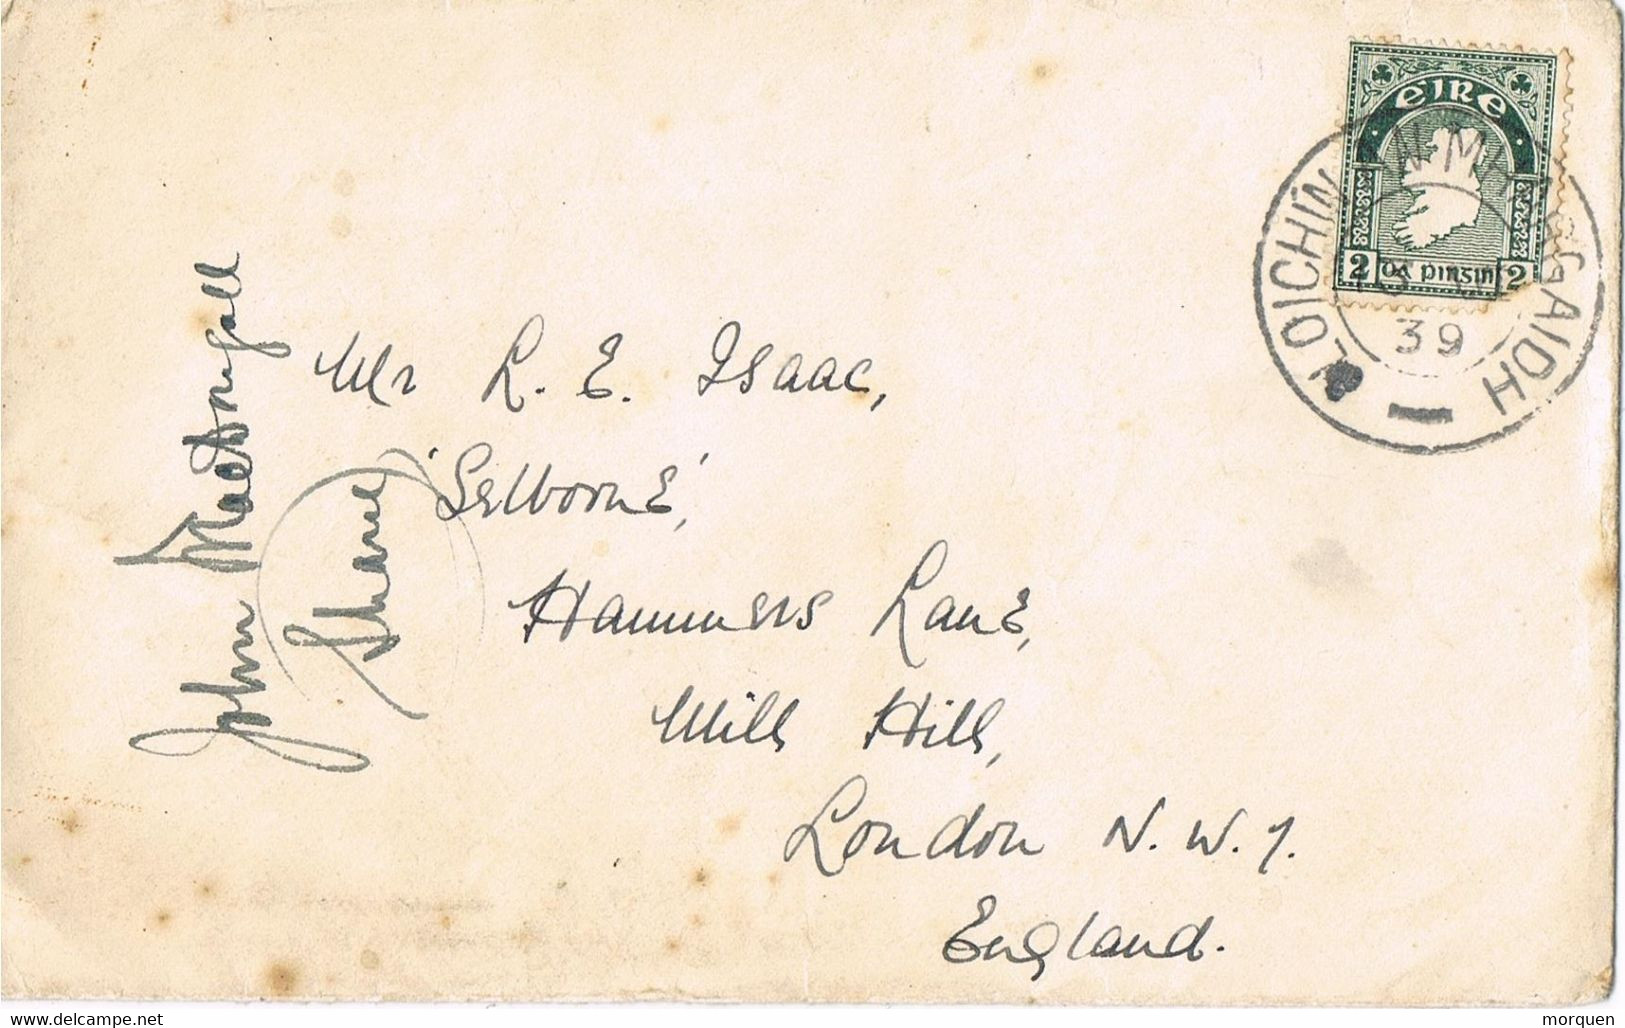 EIRE
2 dá pinginn 2
39
Mr L. E. Isaac,
'Selborne',
Hammers Lane,
Mill Hill,
London N.W.7.
England.
John MacDongall
delcampe.net
morquen